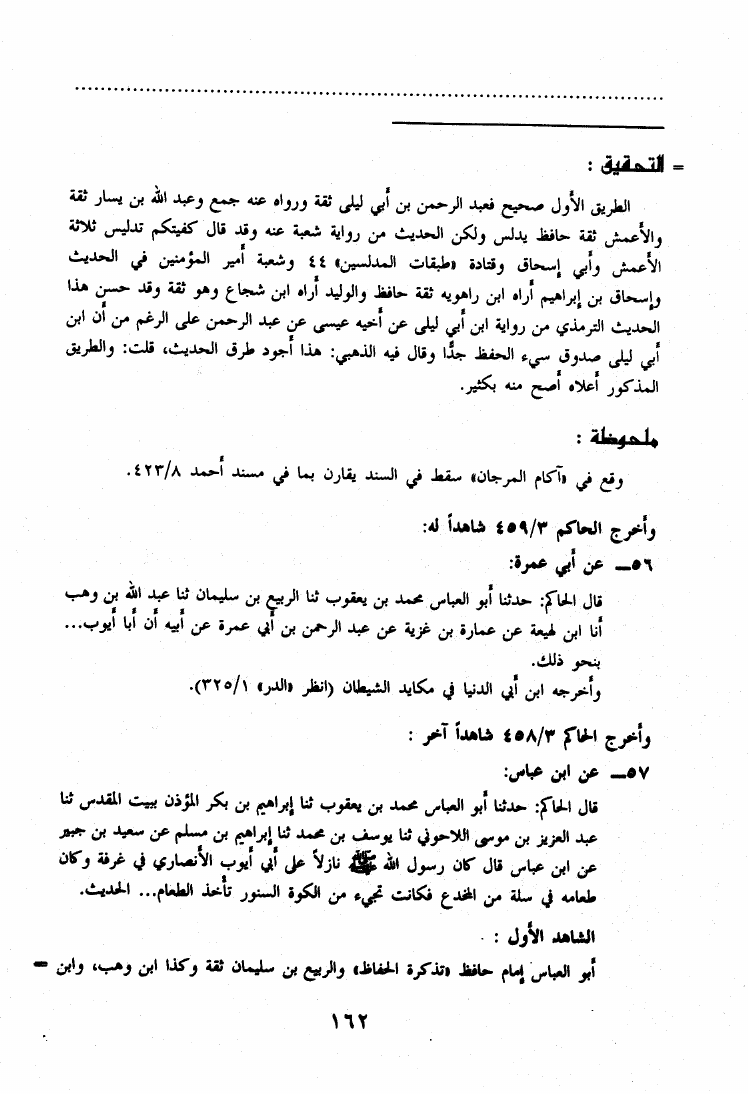 = التحقيق :
الطريق الأول صحيح فعبد الرحمن بن أبي ليلى ثقة ورواه عنه جمع وعبد الله بن يسار ثقة
والأعمش ثقة حافظ يدلس ولكن الحديث من رواية شعبة عنه وقد قال كفيتكم تدليس ثلاثة
الأعمش وأبي إسحاق وقتادة «طبقات المدلسين» ٤٤ وشعبة أمير المؤمنين في الحديث
وإسحاق بن إبراهيم أراه ابن راهويه ثقة حافظ والوليد أراه ابن شجاع وهو ثقة وقد حسن هذا
الحديث الترمذي من رواية ابن أبي ليلى عن أخيه عيسى عن عبد الرحمن على الرغم من أن ابن
أبي ليلى صدوق سيء الحفظ جدًّا وقال فيه الذهبي: هذا أجود طرق الحديث، قلت: والطريق
المذكور أعلاه أصح منه بكثير.
ملحوظة :
وقع في «آكام المرجان» سقط في السند يقارن بما في مسند أحمد ٤٢٣/٨.
وأخرج الحاكم ٤٥٩/٣ شاهداً له:
٥٦ــ عن أبي عمرة:
قال الحاكم: حدثنا أبو العباس محمد بن يعقوب ثنا الربيع بن سليمان ثنا عبد الله بن وهب
أنا ابن لهيعة عن عمارة بن غزية عن عبد الرحمن بن أبي عمرة عن أبيه أن أبا أيوب...
بنحو ذلك.
وأخرجه ابن أبي الدنيا في مكايد الشيطان (انظر «الدر» ٣٢٥/١).
وأخرج الحاكم ٤٥٨/٣ شاهداً آخر :
٥٧ــ عن ابن عباس:
قال الحاكم: حدثنا أبو العباس محمد بن يعقوب ثنا إبراهيم بن بكر المؤذن ببيت المقدس ثنا
عبد العزيز بن موسى اللاحوني ثنا يوسف بن محمد ثنا إبراهيم بن مسلم عن سعيد بن جبير
عن ابن عباس قال كان رسول الله ﷺ نازلاً على أبي أيوب الأنصاري في غرفة وكان
طعامه في سلة من المخدع فكانت تجيء من الكوة السنور تأخذ الطعام... الحديث.
الشاهد الأول :
أبو العباس إمام حافظ «تذكرة الحفاظ» والربيع بن سليمان ثقة وكذا ابن وهب، وابن =
١٦٢